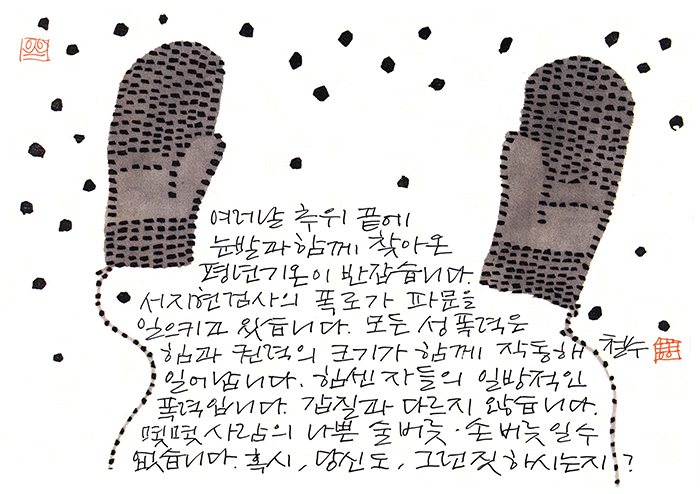 여러날 추위 끝에
눈발과 함께 찾아온
평년기온이 반갑습니다.
서지현검사의 폭로가 파문을
일으키고 있습니다. 모든 성폭력은
힘과 권력의 크기가 함께 작동해
일어납니다. 힘센 자들의 일방적인
폭력입니다. 갑질과 다르지 않습니다.
몇몇 사람의 나쁜 술버릇·손버릇일 수
없습니다. 혹시, 당신도, 그런 짓 하시는지?
철수